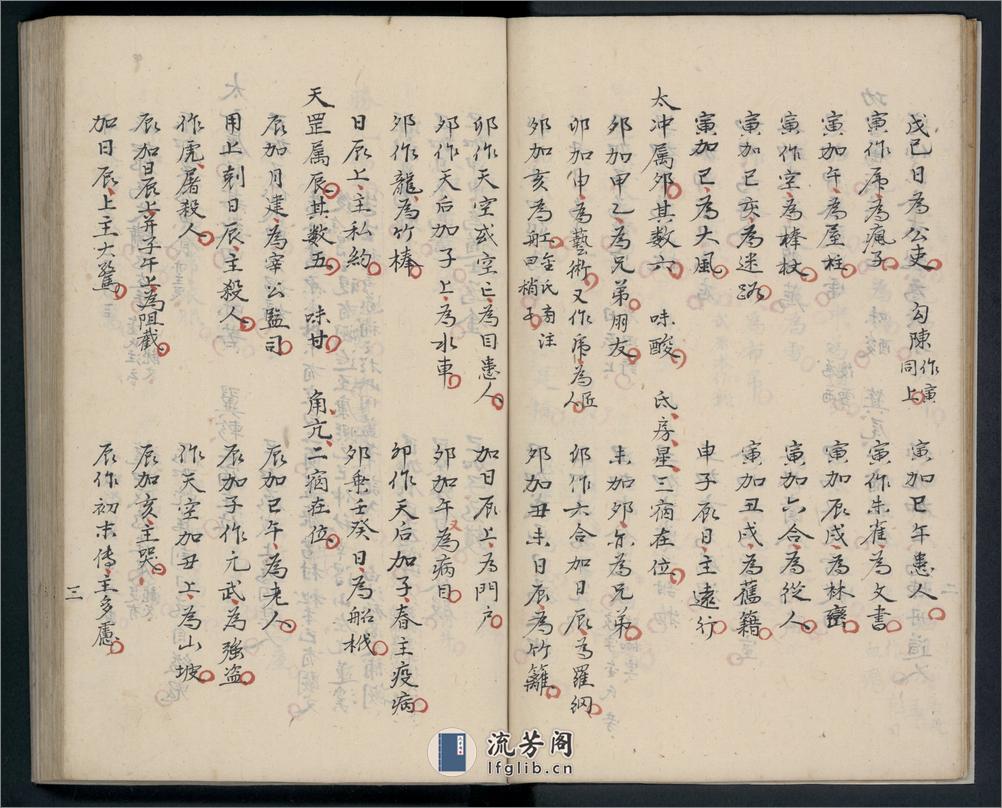 戊己日為公吏 勾陳作寅同上 寅加巳午患人
寅作虎為瘋子 寅作朱雀為文書
寅加午為屋柱 寅加辰戌為林
寅作空為棒杖 寅加六合為從人
寅加巳亥為迷路 寅加丑戌為舊籍
寅加巳為大風 申子辰日主遠行
太冲属卯其數六 味酸 氐房星三宿在位
卯加甲乙為兄弟朋友 未加卯亦為兄弟
卯加申為藝術又作虎為匠人 卯作六合加日辰為羅網
卯加亥為舡金氏商注曰梢子 卯加丑未日辰為竹籬
卯作天空或空亡為目患人 加日辰上為門户
卯作天后加子上為水車 卯加午又為病目
卯作龍為竹棒 卯作天后加子春主疫病
日辰上主私約 卯乘壬癸日為船栰
天罡属辰其數五 味甘 角亢二宿在位
辰加月建為宰公監司 辰加巳午為老人
用上剋日辰主殺人 辰加子作元武為強盗
作虎屠殺人 作天空加丑上為山坡
辰加日辰上并子午上為阻截 辰加亥主哭
加日辰上主大驚 辰作初末傳主多憂
二
三
流芳阁
lfglib.cn